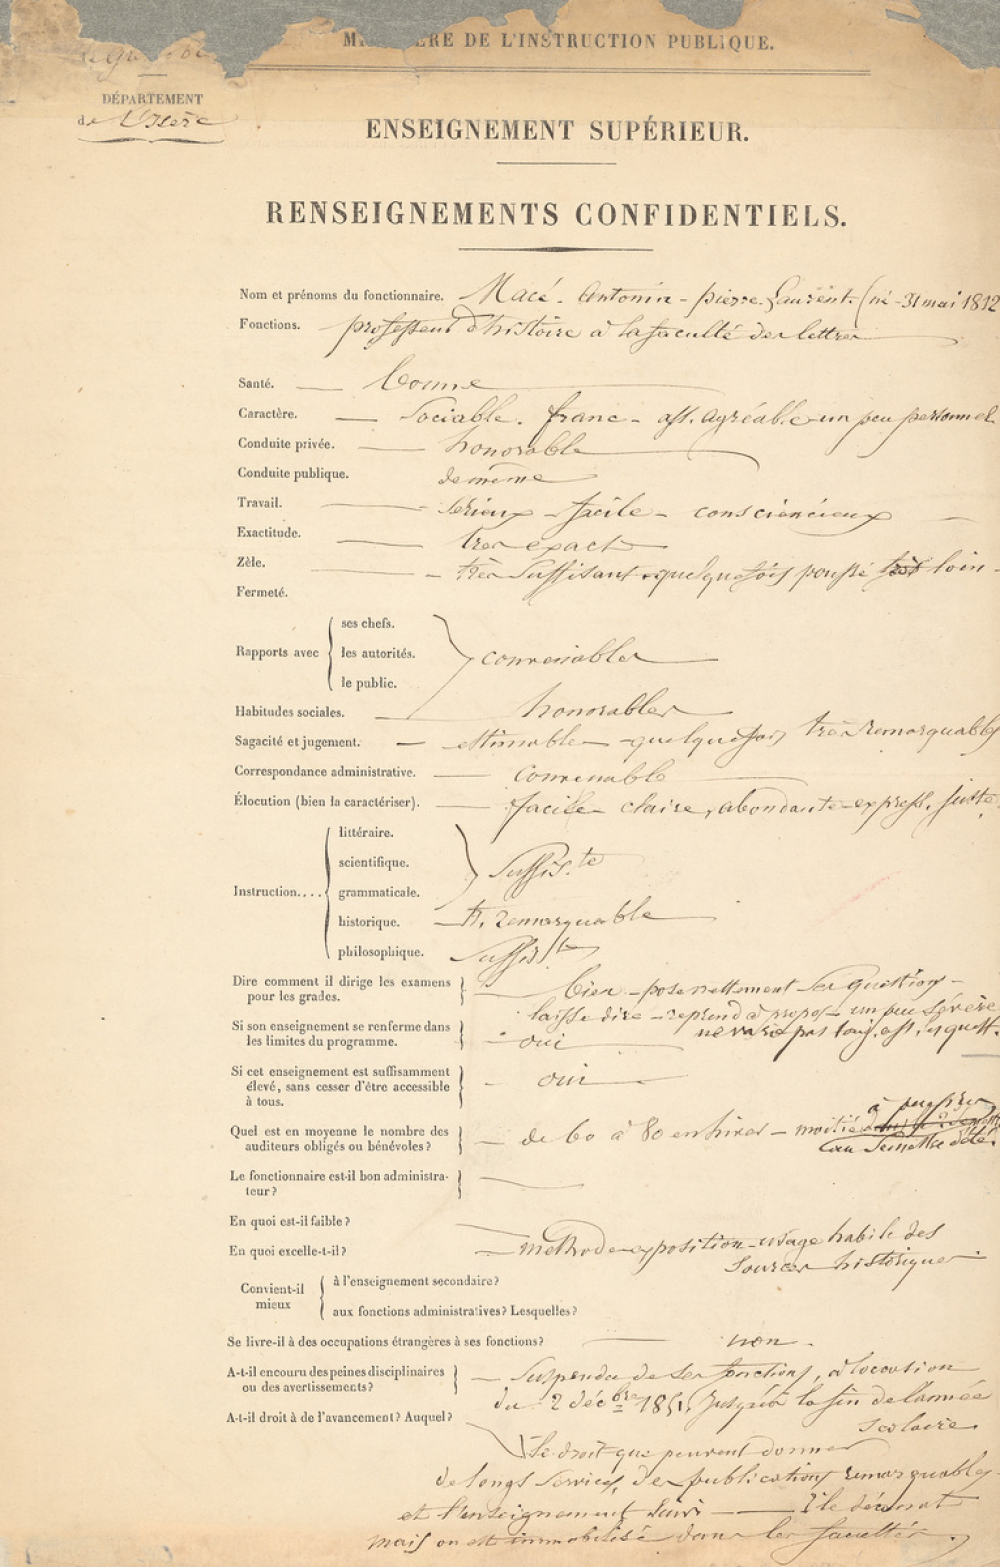 MINISTÈRE DE L'INSTRUCTION PUBLIQUE.
DÉPARTEMENT
de L'Isère
ENSEIGNEMENT SUPÉRIEUR.
RENSEIGNEMENTS CONFIDENTIELS.
Nom et prénoms du fonctionnaire. Macé - Antonin - pierre - Laurent. (né - 31 mai 1812
Fonctions. professeur d'histoire à la faculté des lettres
Santé. bonne
Caractère. Sociable. franc - ass. agréable - un peu personnel
Conduite privée. honorable
Conduite publique. de même
Travail. sérieux - facile - consciencieux
Exactitude. très exact
Zèle. - très suffisant - quelquefois poussé trop loin -
Fermeté.
Rapports avec
ses chefs.
les autorités. convenables
le public.
Habitudes sociales. honorables
Sagacité et jugement. estimables - quelquefois très remarquables
Correspondance administrative. convenable
Élocution (bien la caractériser). facile - claire, abondante - express. juste
Instruction....
littéraire.
scientifique. suffis.te
grammaticale.
historique. tr. remarquable
philosophique. suffis.te
Dire comment il dirige les examens pour les grades. bien - pose nettement ses questions -
laisse dire - reprend à propos - un peu sévère
ne varie pas touj. ass. les quest.
Si son enseignement se renferme dans les limites du programme. - oui
Si cet enseignement est suffisamment élevé, sans cesser d'être accessible à tous. - oui
Quel est en moyenne le nombre des auditeurs obligés ou bénévoles? - de 60 à 80 en hiver - moitié
à peu près
au semestre d'été.
Le fonctionnaire est-il bon administrateur?
En quoi est-il faible?
En quoi excelle-t-il? - méthode - exposition - usage habile des
sources historiques
Convient-il mieux
à l'enseignement secondaire?
aux fonctions administratives? Lesquelles?
Se livre-il à des occupations étrangères à ses fonctions? non.
A-t-il encouru des peines disciplinaires ou des avertissements? - Suspendu de ses fonctions, à l'occasion
du 2 décbre 1851, jusqu'à la fin de l'année
scolaire
A-t-il droit à de l'avancement? Auquel?
le droit que peuvent donner
de longs services, des publications remarquables
et l'enseignement suivi - le décanat
mais on est immobilisé dans les facultés.